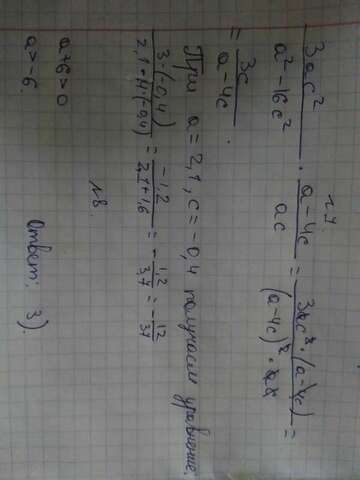 №7.
3ac² / (a² - 16c²) · (a - 4c) / ac = 3ac² · (a - 4c) / ((a - 4c)² · ac) =
= 3c / (a - 4c).
При a = 2,1, c = -0,4 получаем уравнение:
3 · (-0,4) / (2,1 - 4 · (-0,4)) = -1,2 / (2,1 + 1,6) = - 1,2 / 3,7 = - 12 / 37
№8.
a + 6 > 0
a > -6.
Ответ: 3).